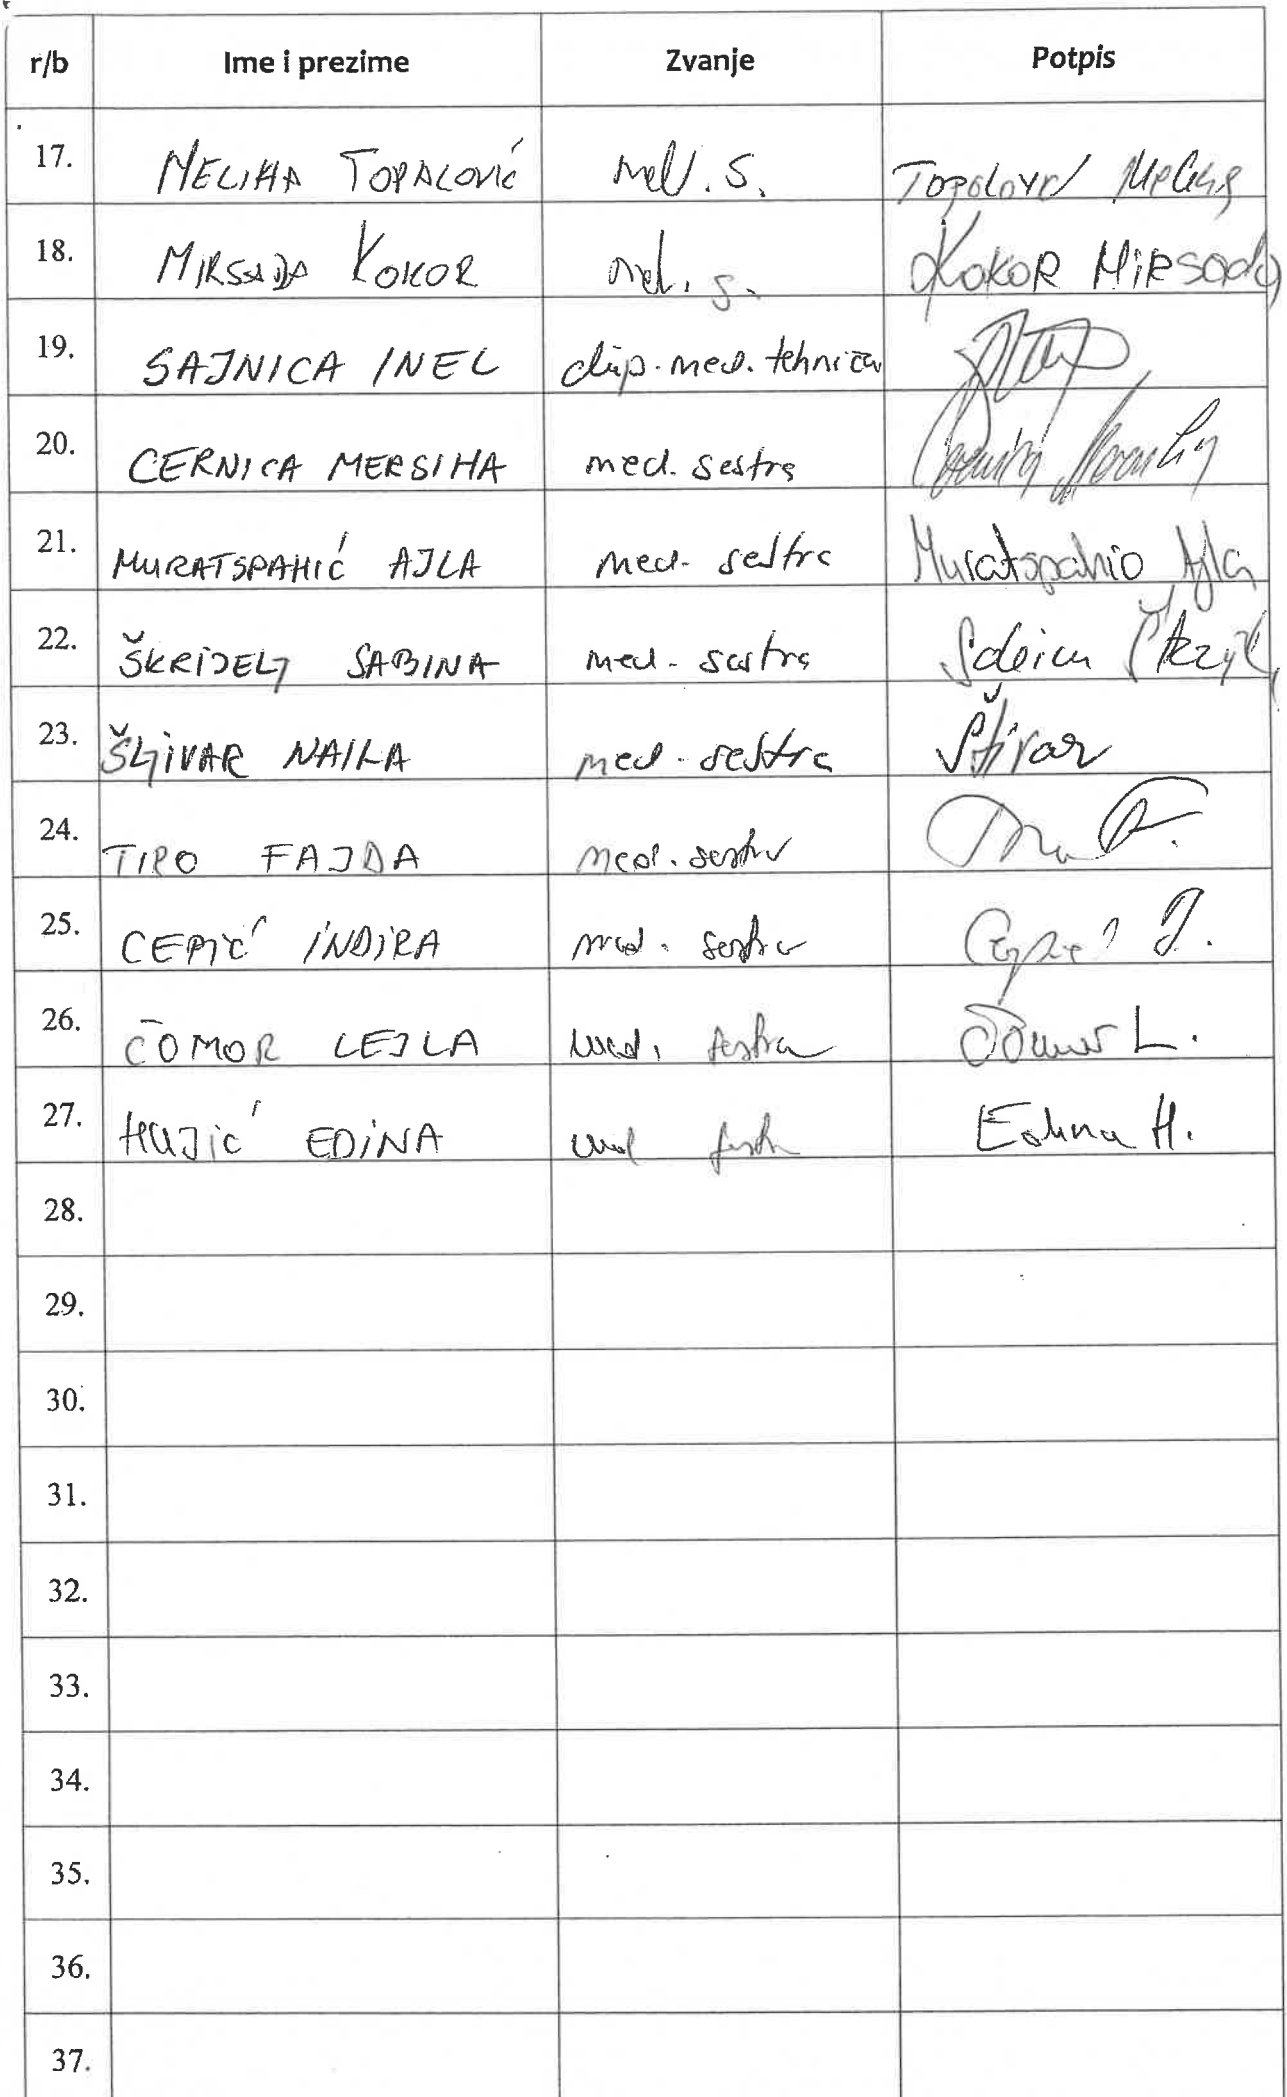 r/b Ime i prezime Zvanje Potpis
17. MELIHA TOPALOVIĆ med. s. Topalović Meliha
18. MIRSADA KOKOR med. s. KOKOR MIRSADA
19. SAJNICA INEL dip. med. tehničar
20. CERNICA MERSIHA med. sestra
21. MURATSPAHIĆ AJLA med. sestra Muratspahić Ajla
22. ŠKRIJELJ SABINA med. sestra Sabina
23. ŠLJIVAR NAILA med. sestra Šljivar
24. TIRO FAJDA med. sestra
25. CEPIĆ INDIRA med. sestra Cepić I.
26. ČOMOR LEJLA med. sestra Čomor L.
27. HUJIĆ EDINA med sestra Edina H.
28.
29.
30.
31.
32.
33.
34.
35.
36.
37.